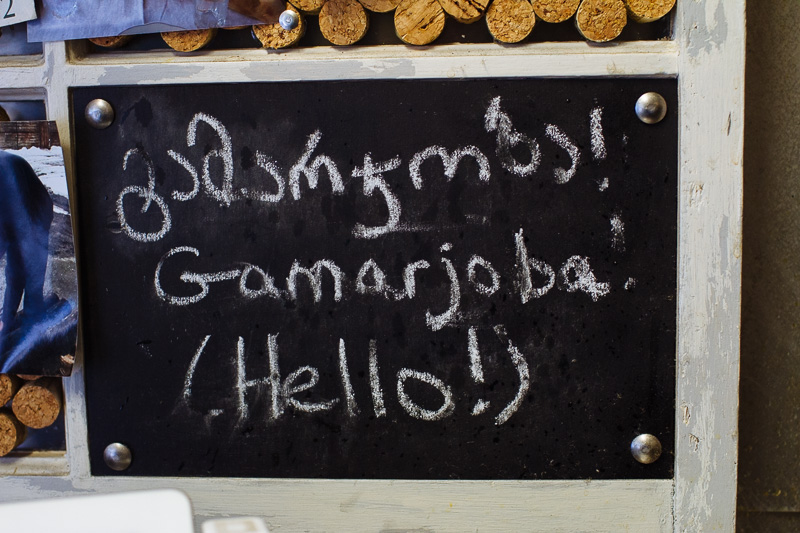 2
გამარჯობა!
Gamarjoba!
(Hello!)